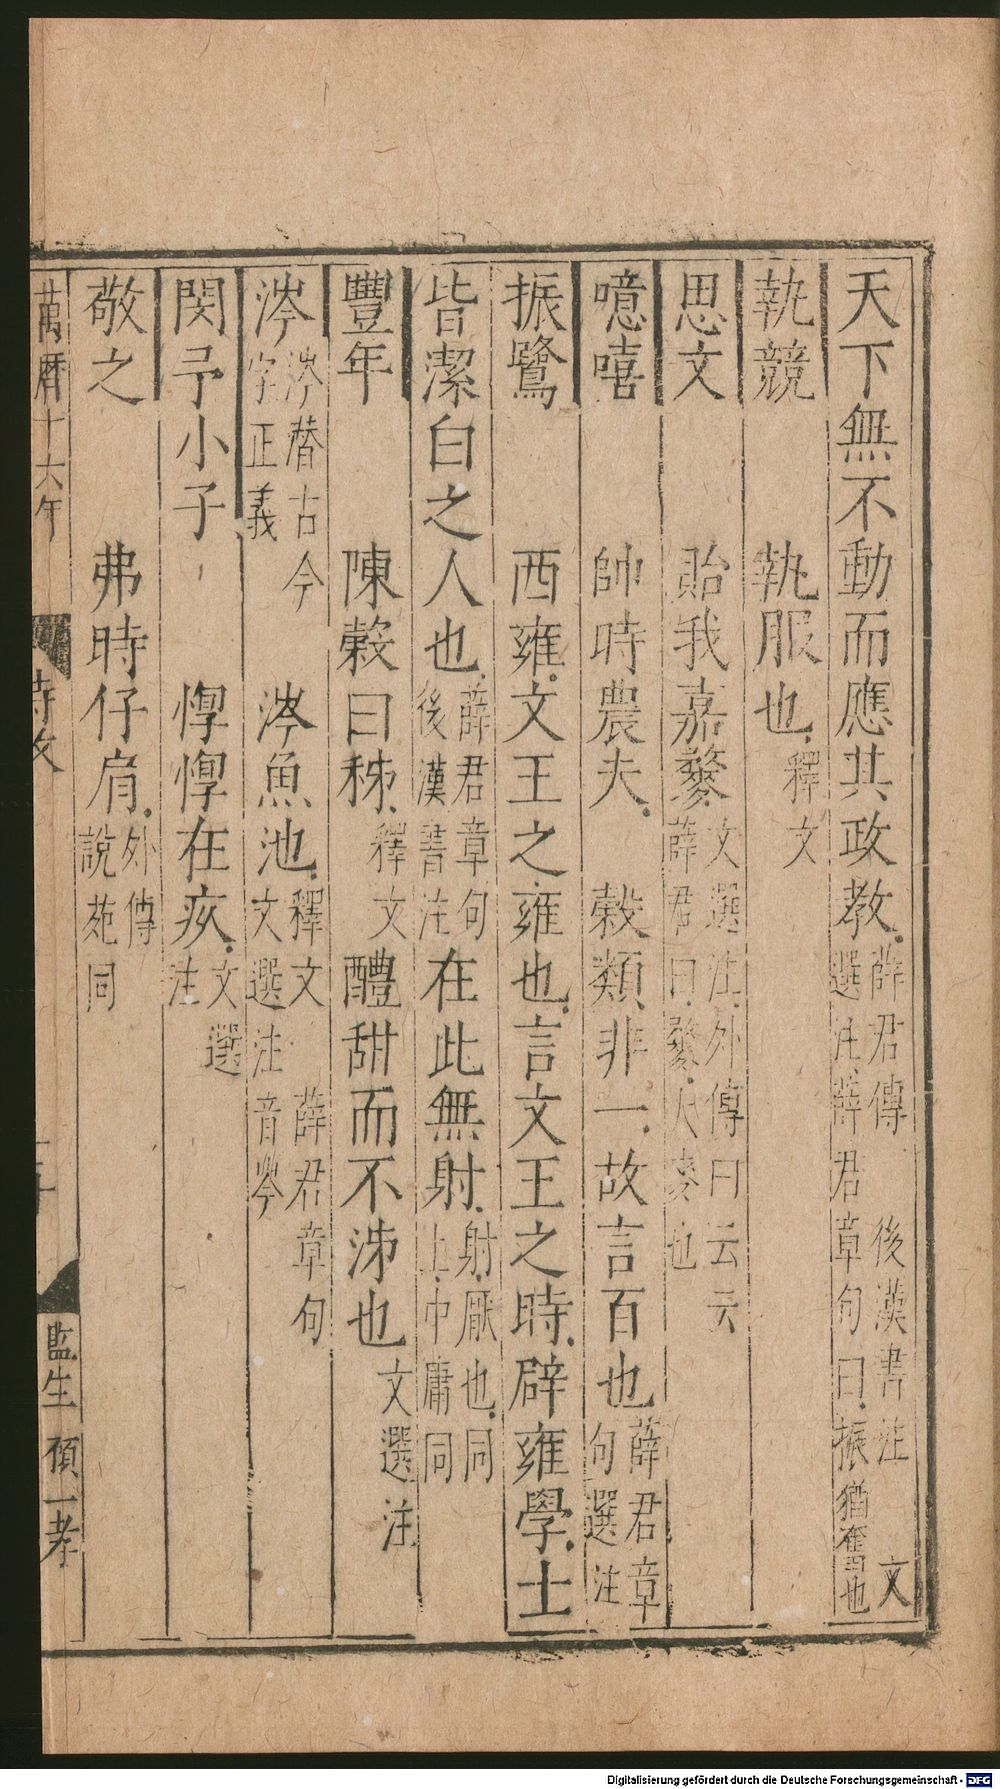 天下無不動而應其政教薛君傳 後漢書注 文選注薛君章句曰振猶奮也
執競 執服也釋文
思文 貽我嘉䵄文選注外傳曰云云薛君曰䵄大麥也
噫嘻 帥時農夫 穀類非一故言百也薛君章句選注
振鷺 西雍文王之雍也言文王之時辟雍學士
皆潔白之人也薛君章句後漢書注在此無射射厭也同上中庸同
豐年 陳穀曰秭釋文 醴甜而不泲也文選注
涔涔朁古今字正義 涔魚池釋文 薛君章句文選注音岑
閔予小子 惸惸在疚文選注
敬之 弗時仔肩外傳說苑同
萬曆十六年 詩攷 監生 一孝
Digitalisierung gefördert durch die Deutsche Forschungsgemeinschaft - DFG